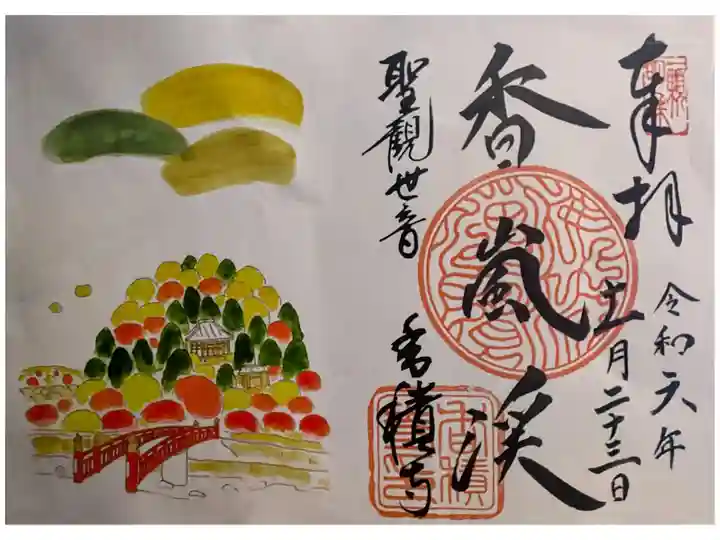 奉拝
令和元年
十一月二十三日
香嵐渓
聖観世音
香積寺